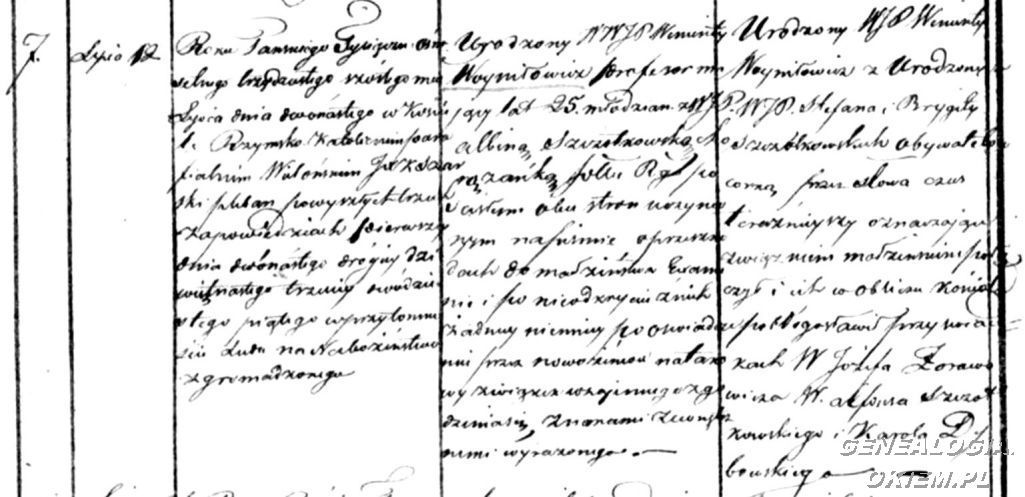 7.
Lipca 12
Roku Pańskiego Tysiącznego ośm
setnego trzydziestego szóstego mca
Lipca dnia dwónastego w Kościele
Rzymsko Katolickim para
fialnym
pleban po wyszłych trzech
zapowiedziach pierwszey
dnia dwónastego drógiey dzie
więtnastego trzeciey dwódzie
stego piątego w przytomno
ści Ludu na Nabożeństwo
zgromadzonego
Urodzony WJP. Wincenty
Woyniłowicz profesor ma
jący lat 25. młodzian z WJP.
Albiną Szczótkowską
po
obu stron uczynio
nym naściśnie o przeszko
dach do małżeństwa Exami
nie i po nieodkryciu z nich
żadney niemniey po oświadcze
niu przez nowożeniów nataro
wy związek wzajemnego zgo
dzenia się, znakami zewnętrz
nemi wyrażonego
Urodzony WJP Wincenty
Woyniłowicz z Urodzonych
WJP. Stefana i Brygity
Szczótkowskich obywatelów
corką przez słowa czas
teraźnieyszy oznaczające
związkiem małżeńskim połą
czył i ich w obliczu Kościoła
pobłogosławił przy świad
kach W Józefa Żoraw
wicza W. Szczót
kowskiego i Karola Dy
bowskiego
GENEALOGIA.
OKIEM.PL